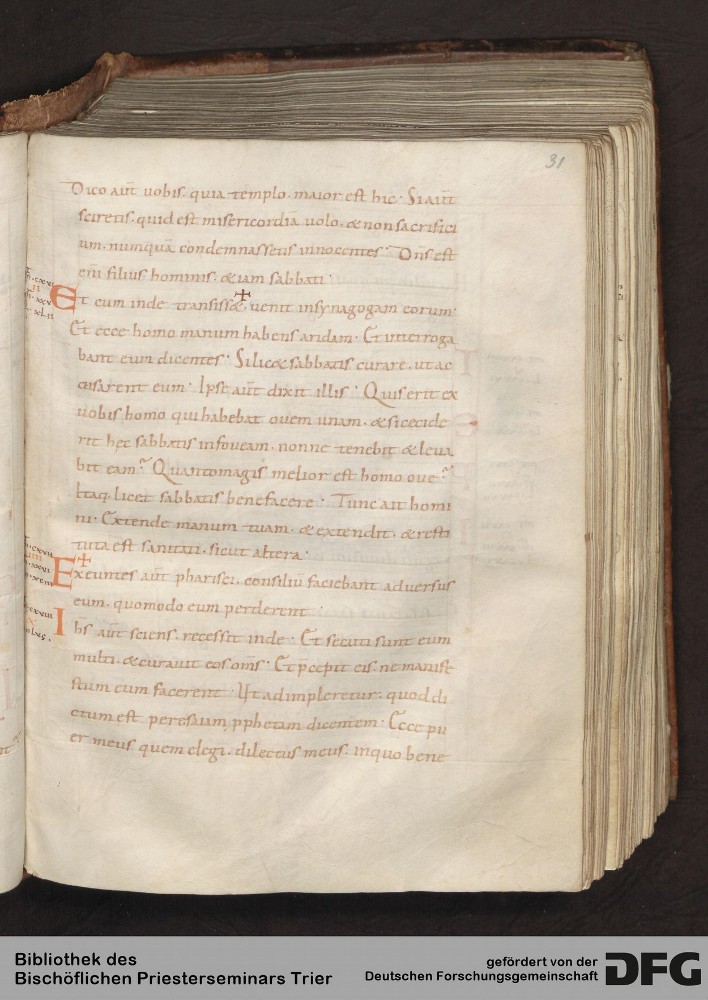 31
Dico aut̄ uobis. quia templo. maior est hic. Si aut̄
sciretis. quid est misericordiā uolo. & non sacrifici
um. numquā condemnassetis innocentes. Dn̄s est
eni filius hominis. & iam sabbati.
Et cum inde transiss& uenit insynagogam eorum.
Et ecce homo manum habens aridam. Et interroga
bant eum dicentes. Si lic& sabbatis curare. ut ac
cusarent eum. Ipse aut̄ dixit illis. Quis erit ex
uobis homo qui habebat ouem unam. & si cecide
rit hęc sabbatis infoueam. nonne tenebit & leua
bit eam? Quantomagis melior est homo oue?
Itaq. licet sabbatis benefacere. Tunc ait homi
ni. Extende manum tuam. & extendit. & resti
tuta est sanitati. sicut altera.
Exeuntes aut̄ pharisei. consiliū faciebant aduersus
eum. quomodo eum perderent.
Ihs̄ aut̄ sciens. recessit inde. Et secuti sunt eum
multi. & curauit eos om̄s. Et p̄cepit eis. ne manife
stum eum facerent. Ut adimpleretur. quod di
ctum est per esaiam pphetam dicentem. Ecce pu
er meus quem elegi. dilectus meus. inquo bene
Bibliothek des
Bischöflichen Priesterseminars Trier
gefördert von der
Deutschen Forschungsgemeinschaft
DFG